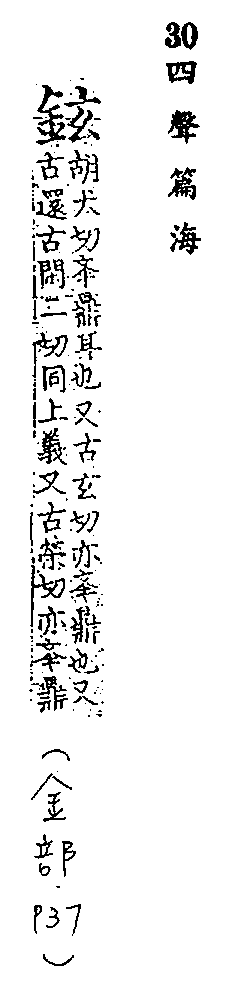 30 四聲篇海
鉉
胡犬切鼎耳也又古玄切亦鼎也又
古還古閑二切同上義又古荣切亦鼎
(金部 P37)